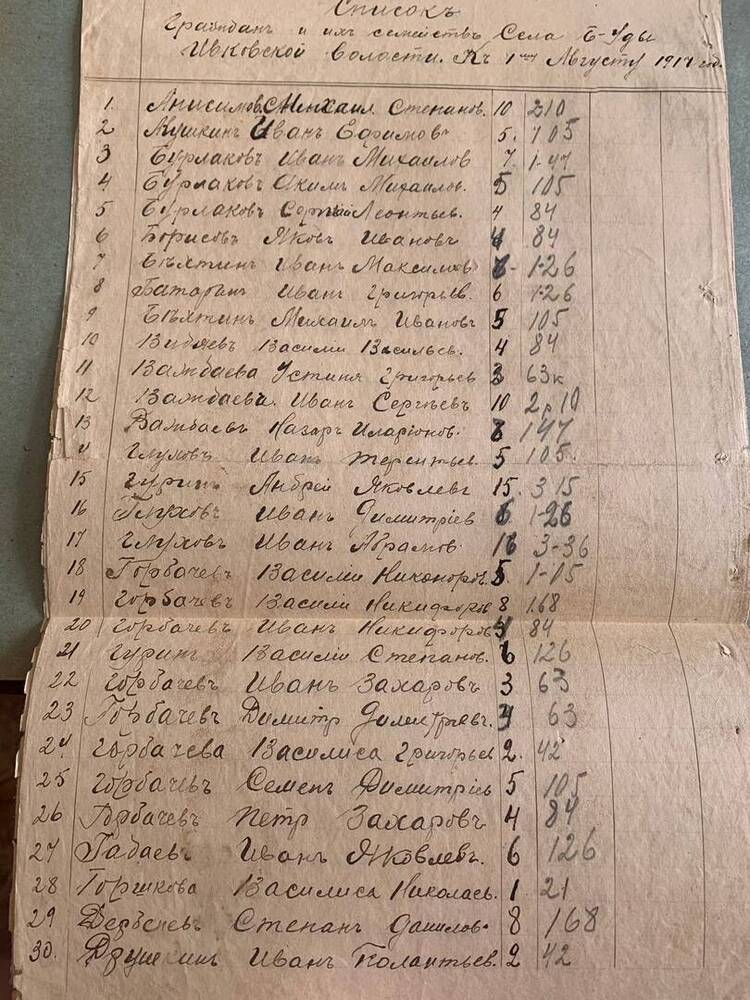 Списокъ
Гражданъ и ихъ семействъ Села Б-Уды
Ивковской волости. Къ 1му Августу 1917 год.
1. Анисимовъ Михаил Степанов. 10 210
2 Мушкинъ Иванъ Ефимовъ 5. 105
3 Бурлаковъ Иванъ Михаилов 7. 1-47
4 Бурлаковъ Акимъ Михаилов. 5 105
5 Бурлаковъ Сергѣй Леонтьев. 4 84
6 Борисовъ Яковъ Ивановъ 4 84
7 Бѣлтинъ Иванъ Максимов 6- 1-26
8 Батаранъ Иванъ Григорьев. 6 1-26
9 Бѣлтинъ Михаилъ Ивановъ 5 105
10 Василіи Васильев. 4 84
11 Вамбаева Устинья Григорьев 3 63к
12 Вамбаева. Иванъ Сергѣевъ 10 2р10
13 Вамбаевъ Назаръ Иларіонов. 147
14 Глуховъ Иванъ Терентьев. 5 105.
15 Гуринъ Андрей Яковлевъ 15. 315
16 Глуховъ Иванъ Димитріев 6 1-26
17 Глуховъ Иванъ Абрамов. 16 3-36
18 Горбачевъ Василіи Никоноров. 5 1-05
19 Горбачевъ Василіи Никифоров 8 1.68
20 Горбачевъ Иванъ Никифоров 4 84
21 Гуринъ Василіи Степанов. 6 126
22 Горбачевъ Иванъ Захаровъ 3 63
23 Горбачевъ Димитр Димитріевъ. 3 63
24 Горбачева Василиса Григорьев 2. 42
25 Горбачевъ Семенъ Димитріев 5 105
26 Горбачевъ Петр Захаровъ 4 84
27 Габаевъ Иванъ Яковлевъ. 6 126
28 Горшкова Василиса Николаев. 1 21
29 Дербенев Степанъ Данилов. 8 168
30. Иванъ Полантьев. 2 42